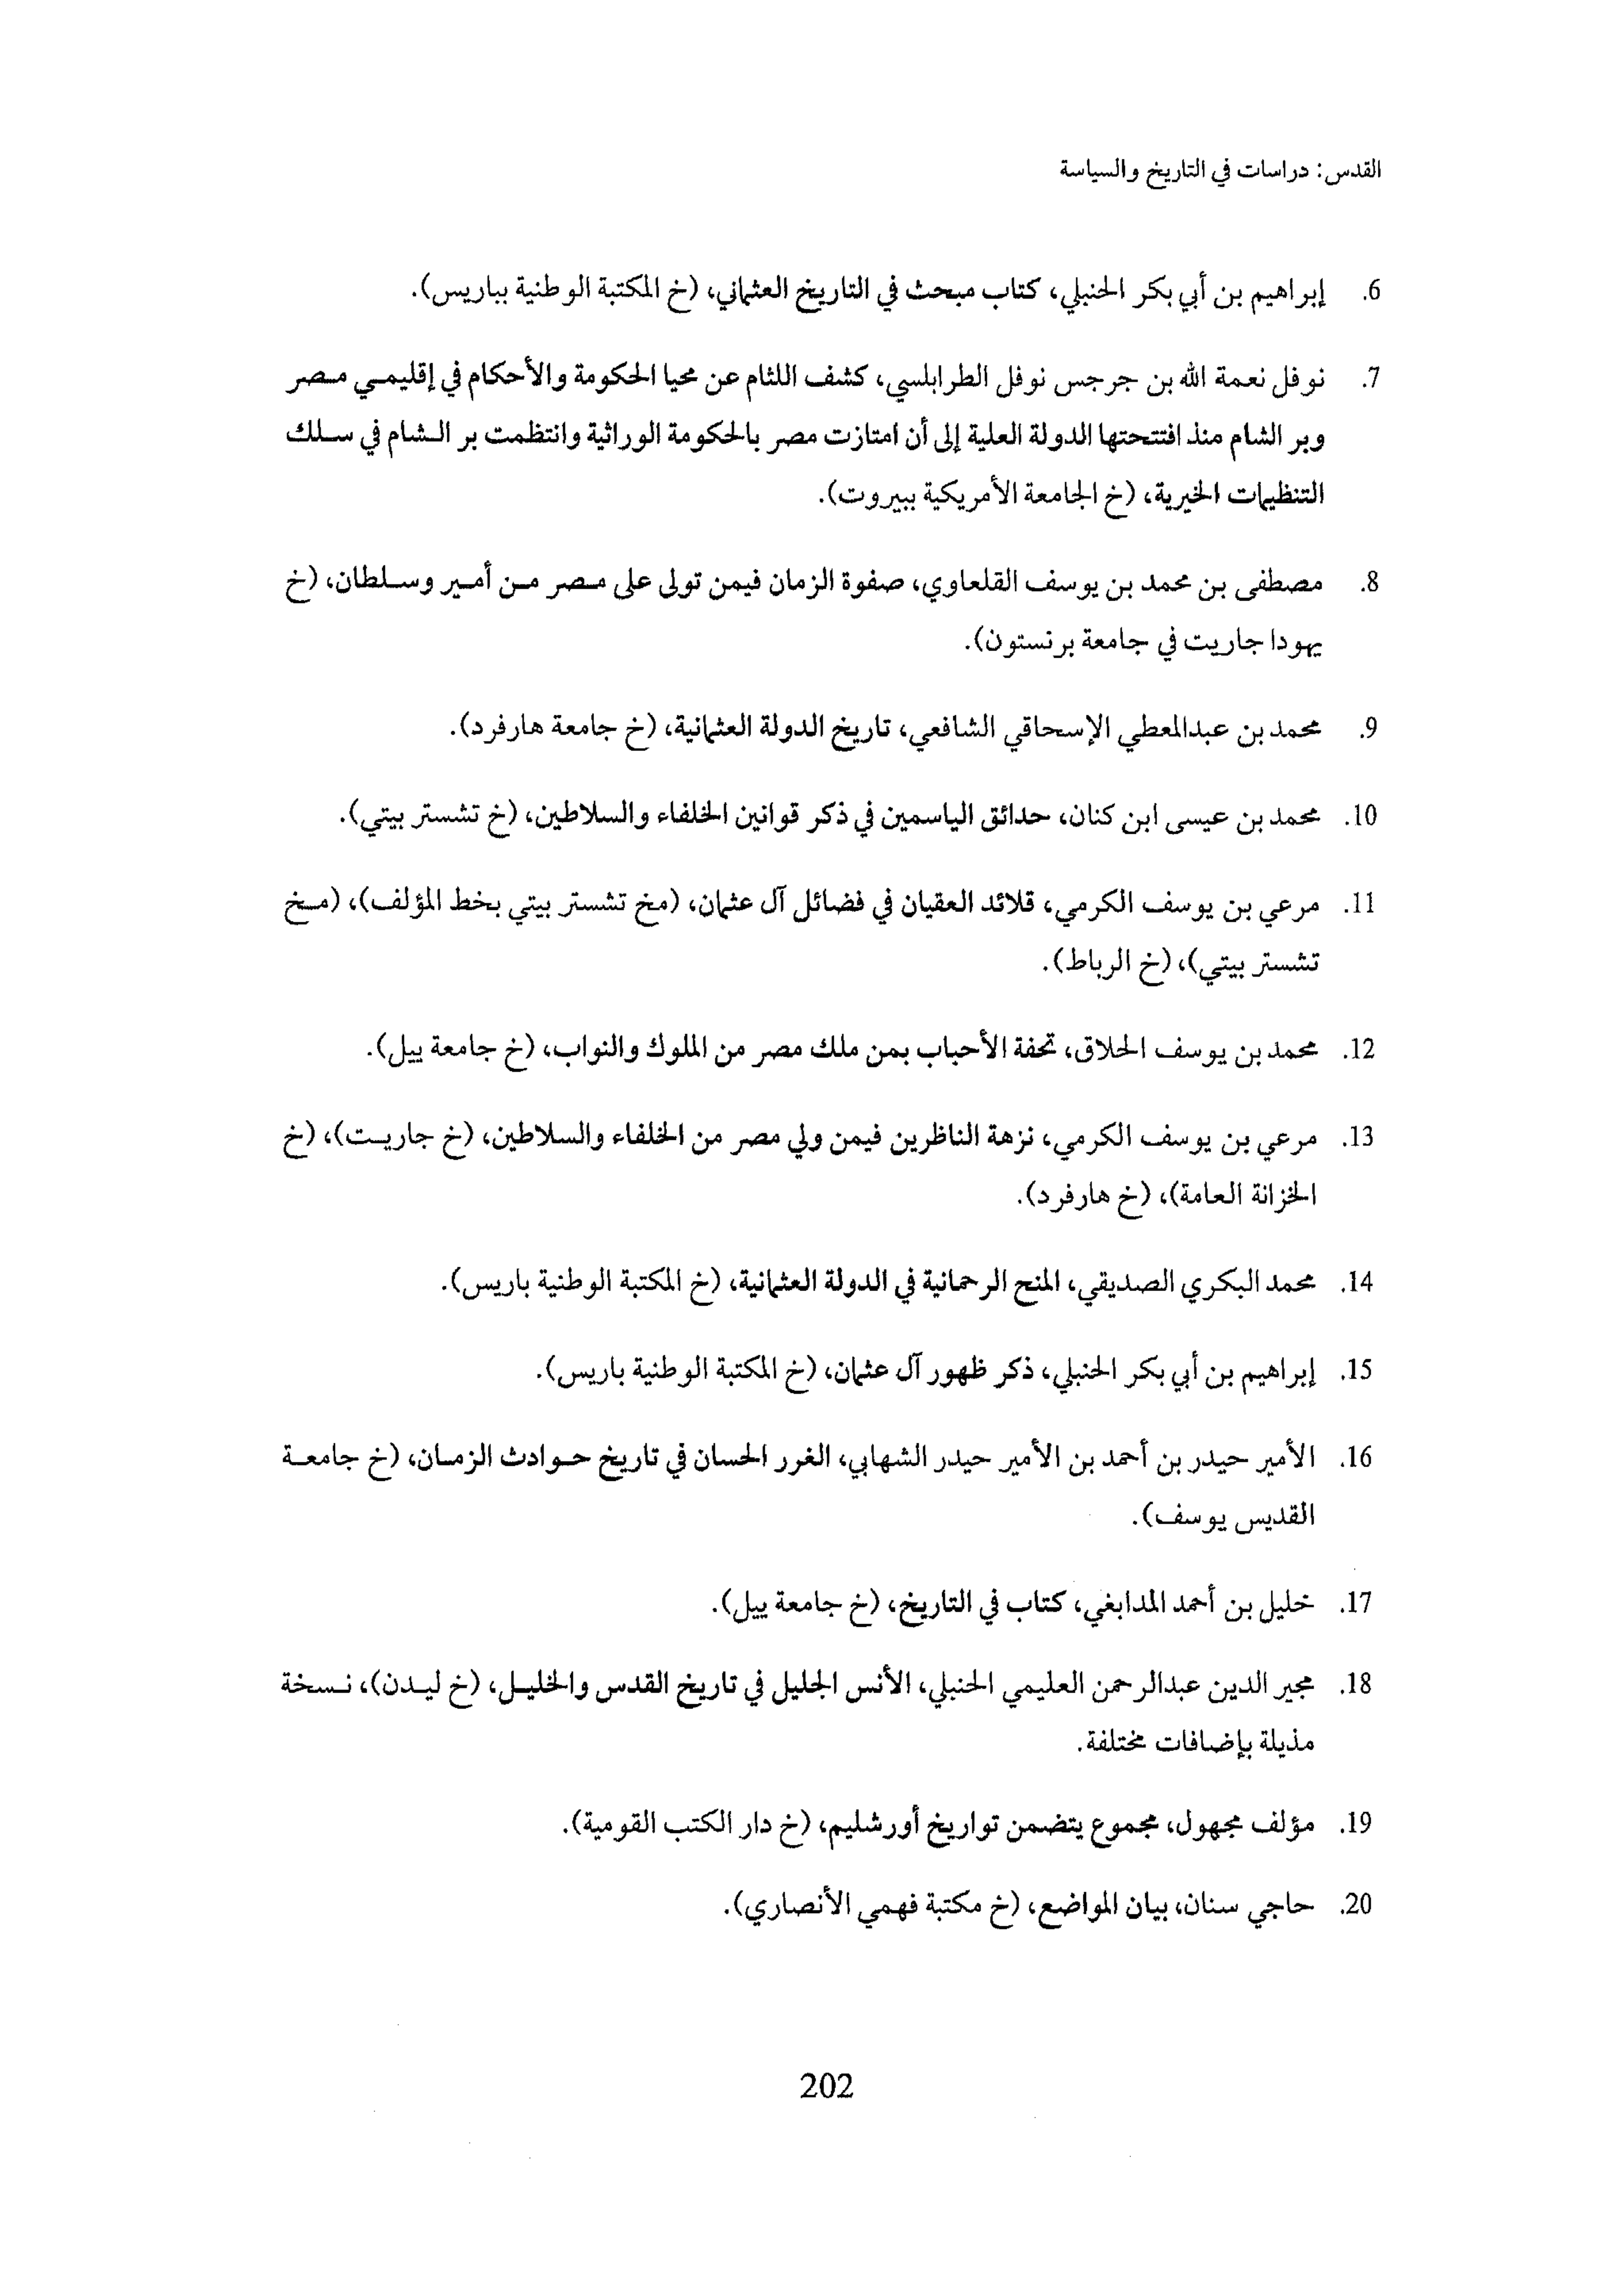 القدس: دراسات في التاريخ والسياسة
6. إبراهيم بن أبي بكر الحنبلي، كتاب مبحث في التاريخ العثماني، (خ المكتبة الوطنية بباريس).
7. نوفل نعمة الله بن جرجس نوفل الطرابلسي، كشف اللثام عن محيا الحكومة والأحكام في إقليمي مصر
وبر الشام منذ افتتحتها الدولة العلية إلى أن امتازت مصر بالحكومة الوراثية وانتظمت بر الشام في سلك
التنظيمات الخيرية، (خ الجامعة الأمريكية ببيروت).
8. مصطفى بن محمد بن يوسف القلعاوي، صفوة الزمان فيمن تولى على مصر من أمير وسلطان، (خ
يهودا جاريت في جامعة برنستون).
9. محمد بن عبدالمعطي الإسحاقي الشافعي، تاريخ الدولة العثمانية، (خ جامعة هارفرد).
10. محمد بن عيسى ابن كنان، حدائق الياسمين في ذكر قوانين الخلفاء والسلاطين، (خ تشستر بيتي).
11. مرعي بن يوسف الكرمي، قلائد العقيان في فضائل آل عثمان، (مخ تشستر بيتي بخط المؤلف)، (مخ
تشستر بيتي)، (خ الرباط).
12. محمد بن يوسف الحلاق، تحفة الأحباب بمن ملك مصر من الملوك والنواب، (خ جامعة ييل).
13. مرعي بن يوسف الكرمي، نزهة الناظرين فيمن ولي مصر من الخلفاء والسلاطين، (خ جاريت)، (خ
الخزانة العامة)، (خ هارفرد).
14. محمد البكري الصديقي، المنح الرحمانية في الدولة العثمانية، (خ المكتبة الوطنية باريس).
15. إبراهيم بن أبي بكر الحنبلي، ذكر ظهور آل عثمان، (خ المكتبة الوطنية باريس).
16. الأمير حيدر بن أحمد بن الأمير حيدر الشهابي، الغرر الحسان في تاريخ حوادث الزمان، (خ جامعة
القديس يوسف).
17. خليل بن أحمد المدابغي، كتاب في التاريخ، (خ جامعة ييل).
18. مجير الدين عبدالرحمن العليمي الحنبلي، الأنس الجليل في تاريخ القدس والخليل، (خ ليدن)، نسخة
مذيلة بإضافات مختلفة.
19. مؤلف مجهول، مجموع يتضمن تواريخ أورشليم، (خ دار الكتب القومية).
20. حاجي سنان، بيان المواضع، (خ مكتبة فهمي الأنصاري).
202